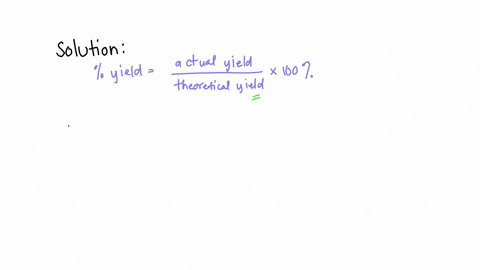 Solution:
% yield = actual yield / theoretical yield × 100 %.